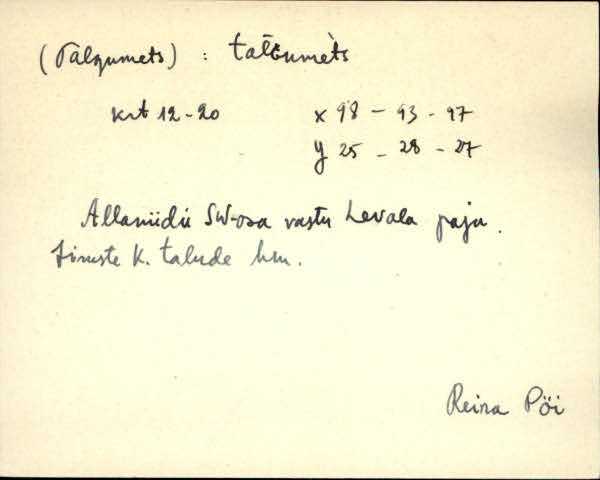 (Talgumets) : tal̀Gumèts
krt 12-20 x 98 - 93 - 97
y 25 - 28 - 27
Allaniidu SW-osa vastu Levala paju.
k. talude hm.
Reina Pöi